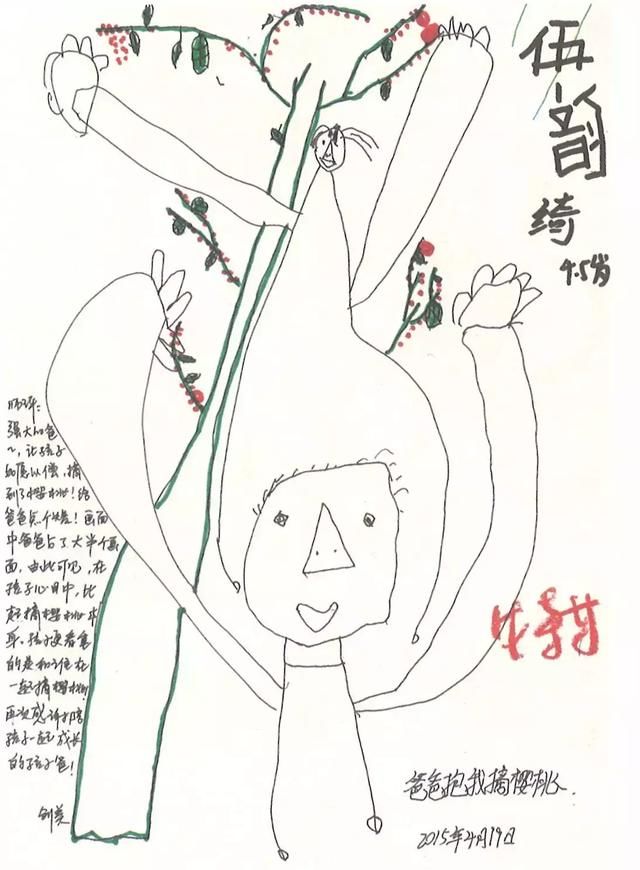 伍
韵
绮
4.5岁
师评:
强大的爸
~, 让孩子
如愿以偿, 摘
到了樱桃! 给
爸爸点个赞! 画面
中爸爸占了大半个画
面, 由此可见, 在
孩子心目中, 比
起摘樱桃本
身, 孩子更看重
的是和你在
一起摘樱桃!
再次感谢陪
孩子一起成长
的孩子爸!
爸爸抱我摘樱桃.
2015年4月19日